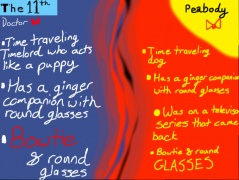 The 11th
Doctor
• Time traveling
Timelord who acts
like a puppy
• Has a ginger
companion with
round glasses
• Bowtie
& round
glasses
Peabody
• Time traveling
dog
• Has a ginger companion
with round glasses
• Was on a television
series that came
back
• Bowtie & round
GLASSES